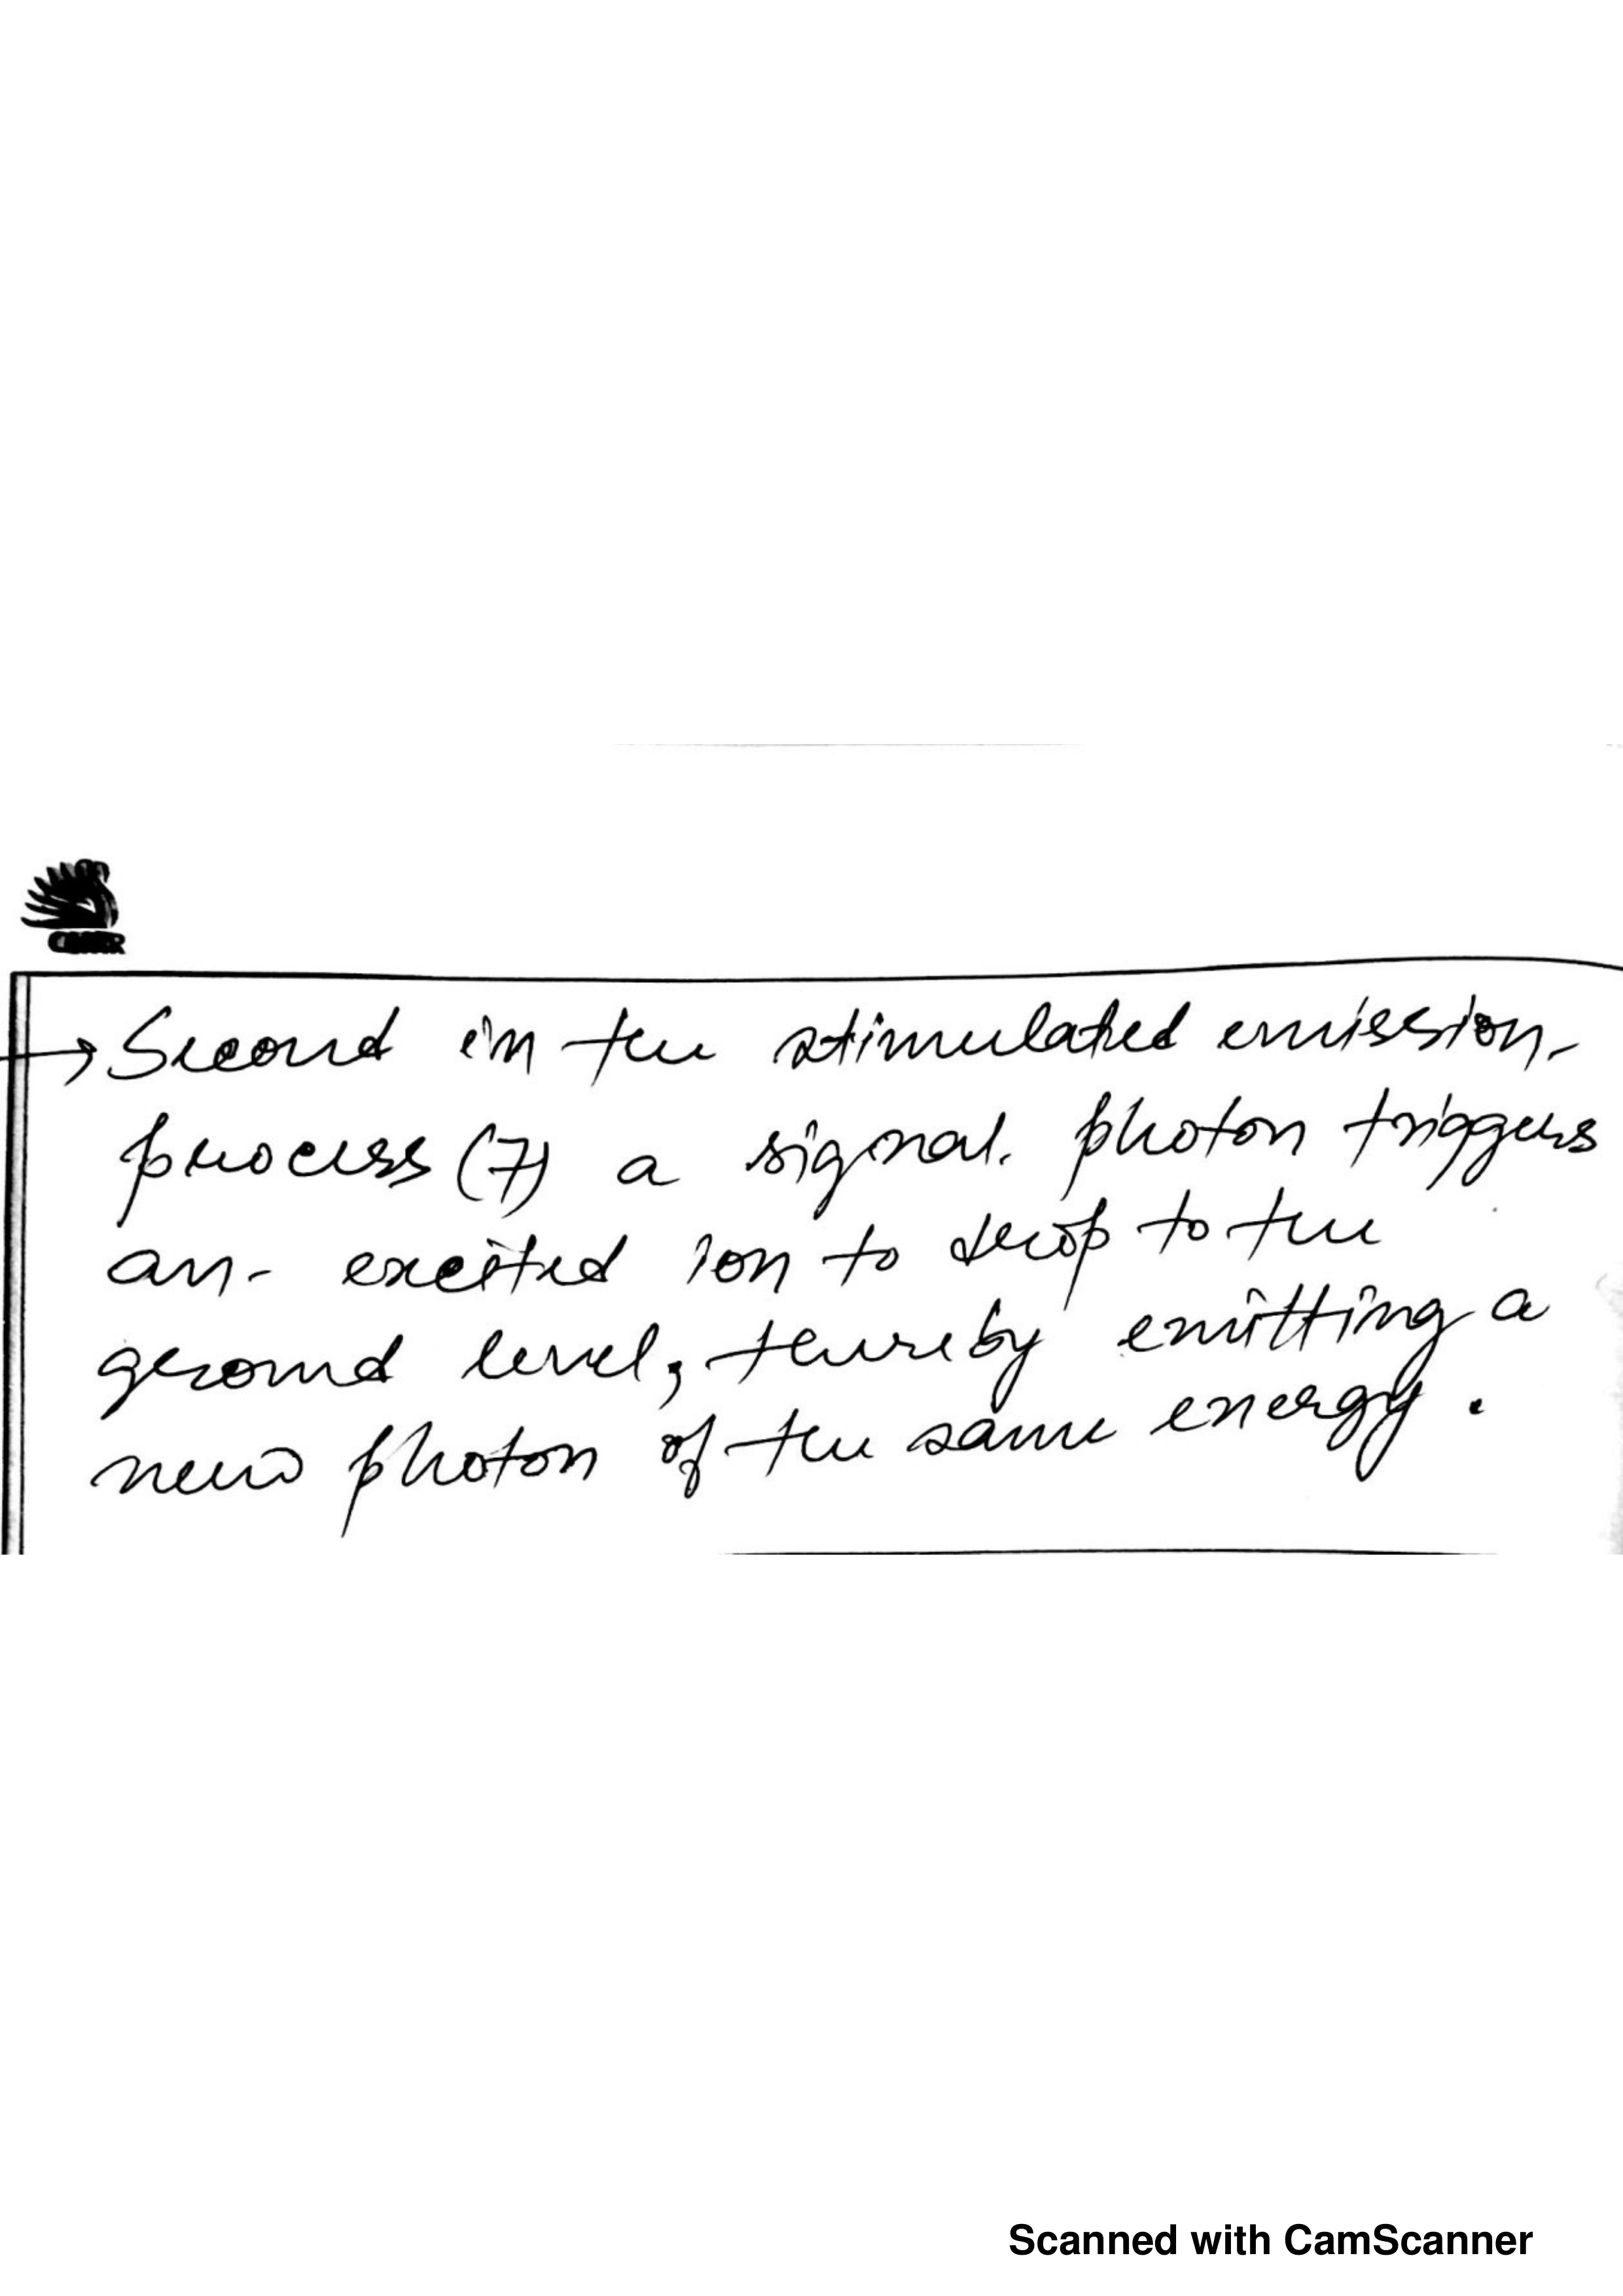 → Second in the stimulated emission
process (7) a signal photon triggers
an excited ion to drop to the
ground level, thereby emitting a
new photon of the same energy.
Scanned with CamScanner